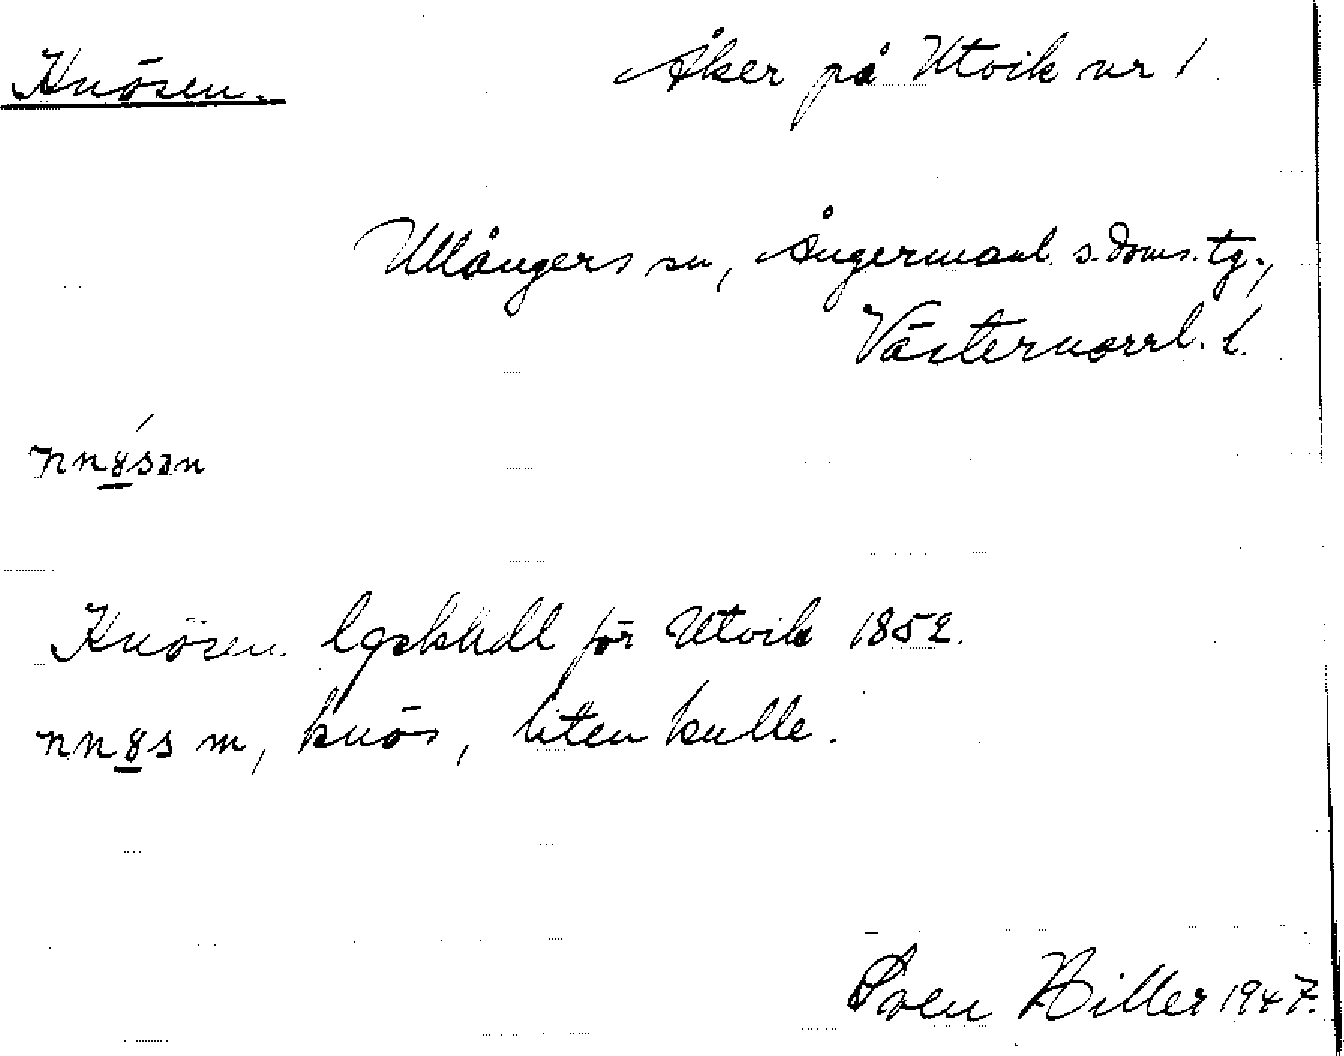 Knösen. Åker på Utvik nr 1.
Ullångers sn, Ångermanl. s. doms. tg.,
Västernorrl. l.
Knösen. lgskhdl för Utvik 1852.
m, knös, liten kulle.
Sven Hiller 1947.